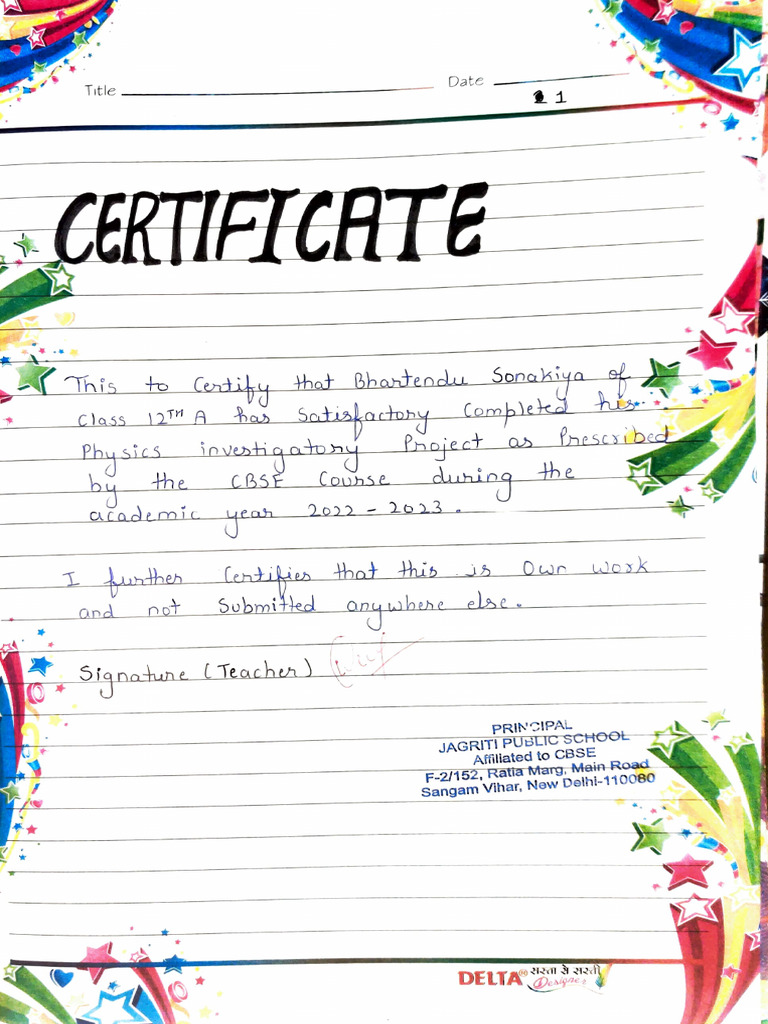 Title
Date
1
CERTIFICATE
This to Certify that Bhartendu Sonakiya of
Class 12TH A has Satisfactory Completed his
Physics investigatory Project as Prescribed
by the CBSE Course during the
academic year 2022 - 2023.
I further Certifies that this is Own work
and not Submitted anywhere else.
Signature (Teacher)
PRINCIPAL
JAGRITI PUBLIC SCHOOL
Affiliated to CBSE
F-2/152, Ratia Marg, Main Road
Sangam Vihar, New Delhi-110080
DELTA® सस्ता से सस्ती
Designer